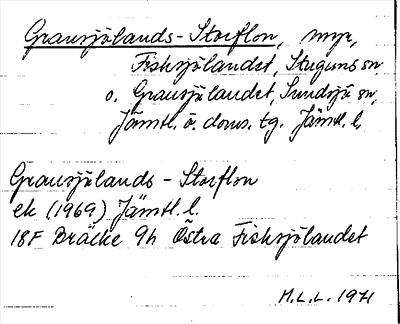 Gransjölands-Storflon, myr,
Fisksjölandet, Stuguns sn
o. Gransjölandet, Sundsjö sn,
Jämtl. ö. doms. tg. Jämtl. l.
Gransjölands - Storflon
ek (1969) Jämtl. l.
18F Bräcke 9h Östra Fisksjölandet
M.L.L. 1971